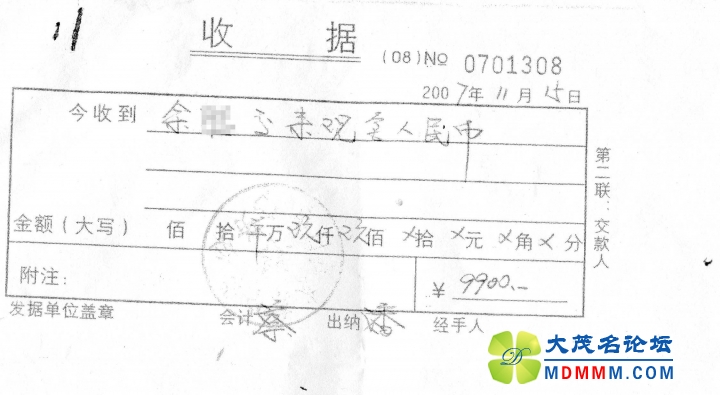 收 据
(08)№ 0701308
2007年11月15日
今收到 余 交来现金人民币
金额(大写) 佰 拾 万玖仟玖佰 ×拾 ×元 ×角 × 分
附注: ¥ 9900.-
发据单位盖章 会计 蔡 出纳 香 经手人
第二联:交款人
大茂名论坛
MDMMM.COM